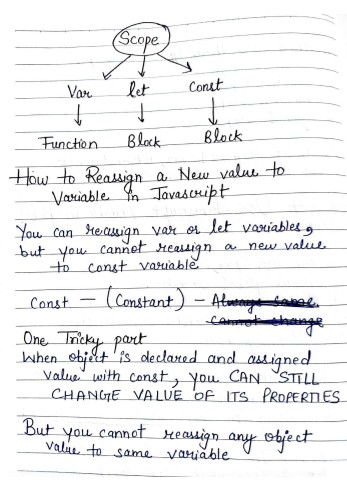 Scope
Var let Const
Function Block Block
How to Reassign a New value to
Variable in Javascript
You can reassign var or let variables,
but you cannot reassign a new value
to const variable
Const - (Constant) - Always same.
cannot change
One Tricky part
When object is declared and assigned
value with const, you CAN STILL
CHANGE VALUE OF ITS PROPERTIES
But you cannot reassign any object
value to same variable